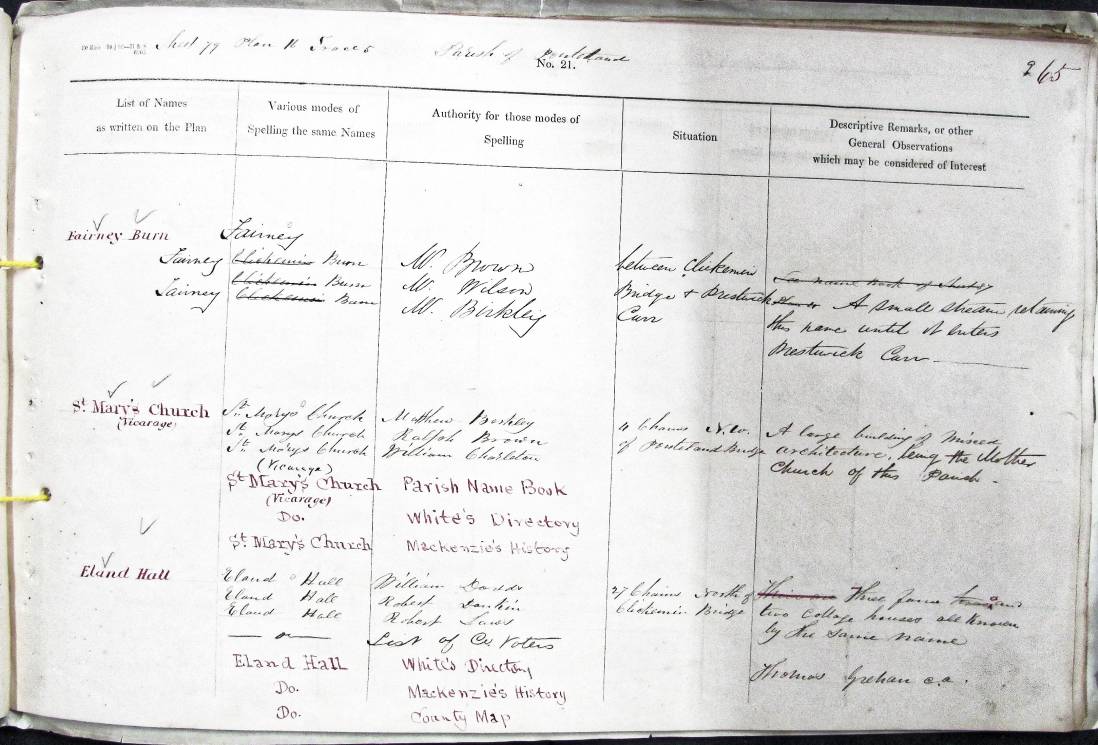 Sheet 79 Plan 11 Trace 5 Parish of Ponteland
No. 21.
265
List of Names
as written on the Plan
Various modes of
Spelling the same Names
Authority for those modes of
Spelling
Situation
Descriptive Remarks, or other
General Observations
which may be considered of Interest
Fairney Burn
Fairney
Fairney Clickemin Burn
Clickemin Burn
Fairney Clickemin Burn
W. Brown
W. Wilson
W. Birkley
between Clickemin
Bridge + Prestwick
Carr
A small stream retaining
this name until it enters
Prestwick Carr
St. Mary's Church
(Vicarage)
St. Marys Church
St. Marys Church
St. Marys Church
(Vicarage)
St Mary's Church
(Vicarage)
Do.
St Mary's Church
Matthew Berkley
Ralph Brown
William Charlton
Parish Name Book
White's Directory
Mackenzie's History
4 Chains N.W.
of Ponteland Bridge
A large building of mixed
architecture, being the Mother
Church of this Parish
Eland Hall
Eland Hall
Eland Hall
Eland Hall
— " —
Eland Hall
Do.
Do.
William Dodds
Robert Dunkin
Robert
List of Co. Voters
White's Directory
Mackenzie's History
County Map
27 Chains North of
Clickemin Bridge
Three farm and
two Cottage houses all known
by the same name
Thomas Grehan c.a.